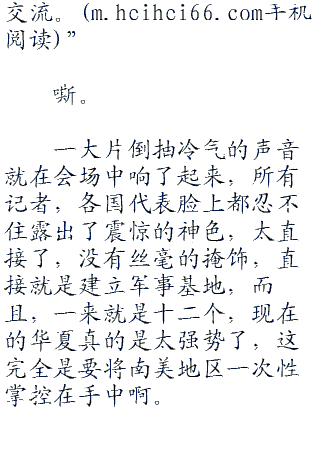 交流。(m.hcihci66.com手机
阅读)”
嘶。
一大片倒抽冷气的声音
就在会场中响了起来，所有
记者，各国代表脸上都忍不
住露出了震惊的神色，太直
接了，没有丝毫的掩饰，直
接就是建立军事基地，而
且，一来就是十二个，现在
的华夏真的是太强势了，这
完全是要将南美地区一次性
掌控在手中啊。